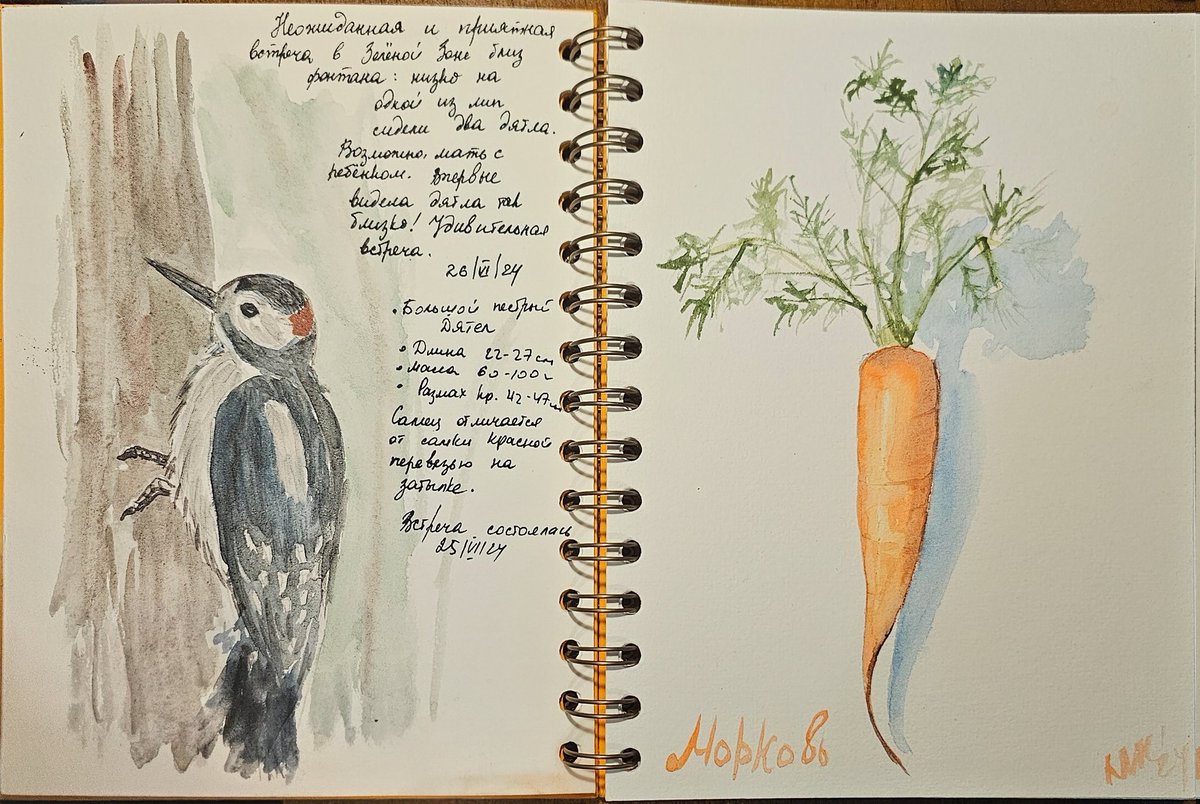 Неожиданная и приятная
встреча в Зелёной Зоне близ
фонтана: низко на
одной из лип
сидели два дятла.
Возможно, мать с
ребёнком. Впервые
видела дятла так
близко! Удивительная
встреча.
26/VI/24
• Большой пестрый
Дятел
• Длина 22-27см
• масса 60-100г
• Размах кр. 42-47см
Самец отличается
от самки красной
перевязью на
затылке.
Встреча состоялась
25/VI/24
Морковь